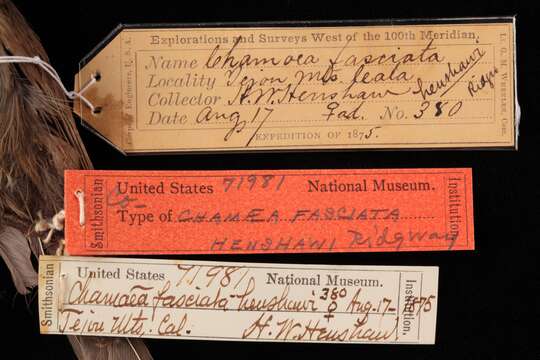 Explorations and Surveys West of the 100th Meridian.
Name Chamoea fasciata
henshawi
Ridgw
Locality Tejon Mts Cala
Collector H.W. Henshaw
Date Aug 17 ♀ad. No. 380
EXPEDITION OF 1875.
Engineers, U.S.A.
Lt. G. M. WHEELER, Com.
Smithsonian
United States 71981 National Museum.
Co-
Type of CHAMÆA FASCIATA
HENSHAWI Ridgway
Institution.
Smithsonian
United States 71981 National Museum.
Chamaea fasciata henshawi 380 ♀ Aug. 17-1875
Tejon Mts. Cal. H. W. Henshaw
Institution.